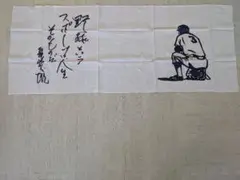 野球という
スポーツは人生
そのものだ